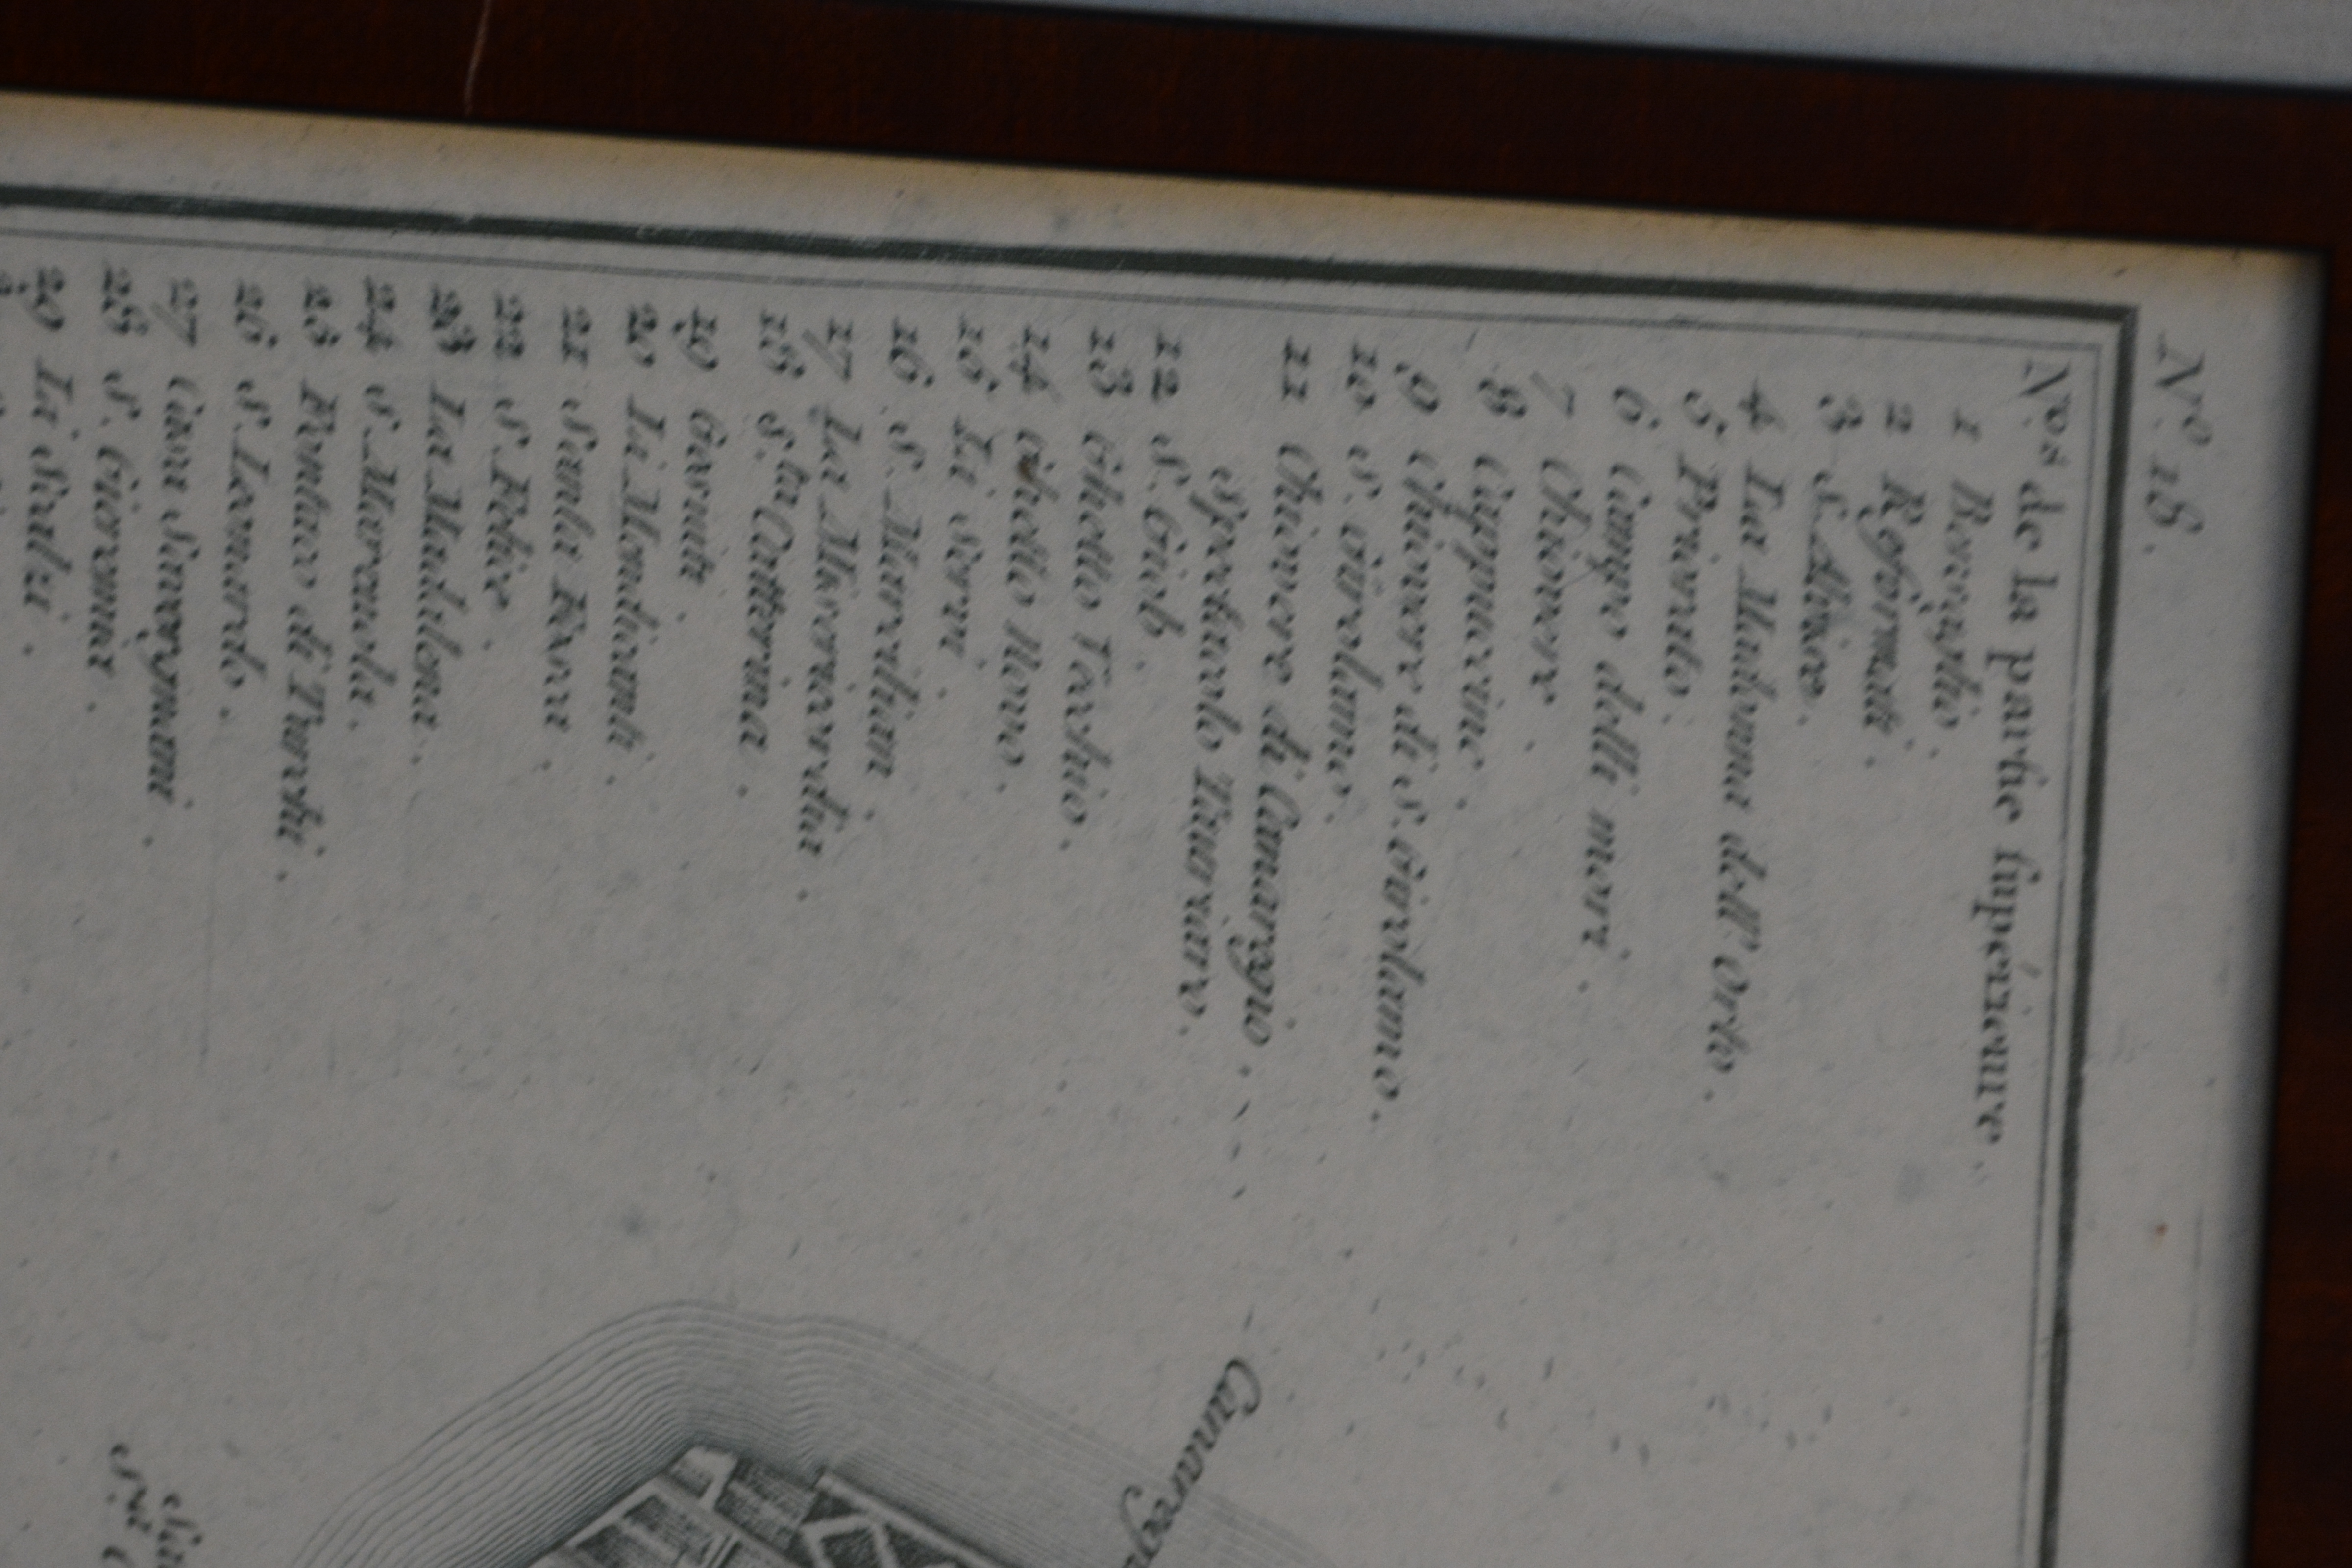 N.º 18.
N.ºs de la partie supérieure
1
2 Reformati.
3 S. Alvise.
4 La Madonna dell' Orto.
5 Privato.
6 Campo delli mori.
7 Chiovere.
8 Cappucine.
9 Chiovere di S. Girolamo.
10 S. Girolamo.
11 Chiovere di Canaregio.
12 S. Giob.
13 Ghetto Vecchio.
14 Ghetto Novo.
15 Li Servi.
16 S. Marcilian.
17 La Misericordia.
18 S.ta Catterina.
19 Gesuiti.
20 Li Mendicanti.
21 Scuola
22 S. Felice.
23 La Madalena.
24 S. Marcuola.
25 Fontaco di Turchi.
26 S. Leonardo.
27 Casa
28 S. Gieremia.
29 Li Scalzi.